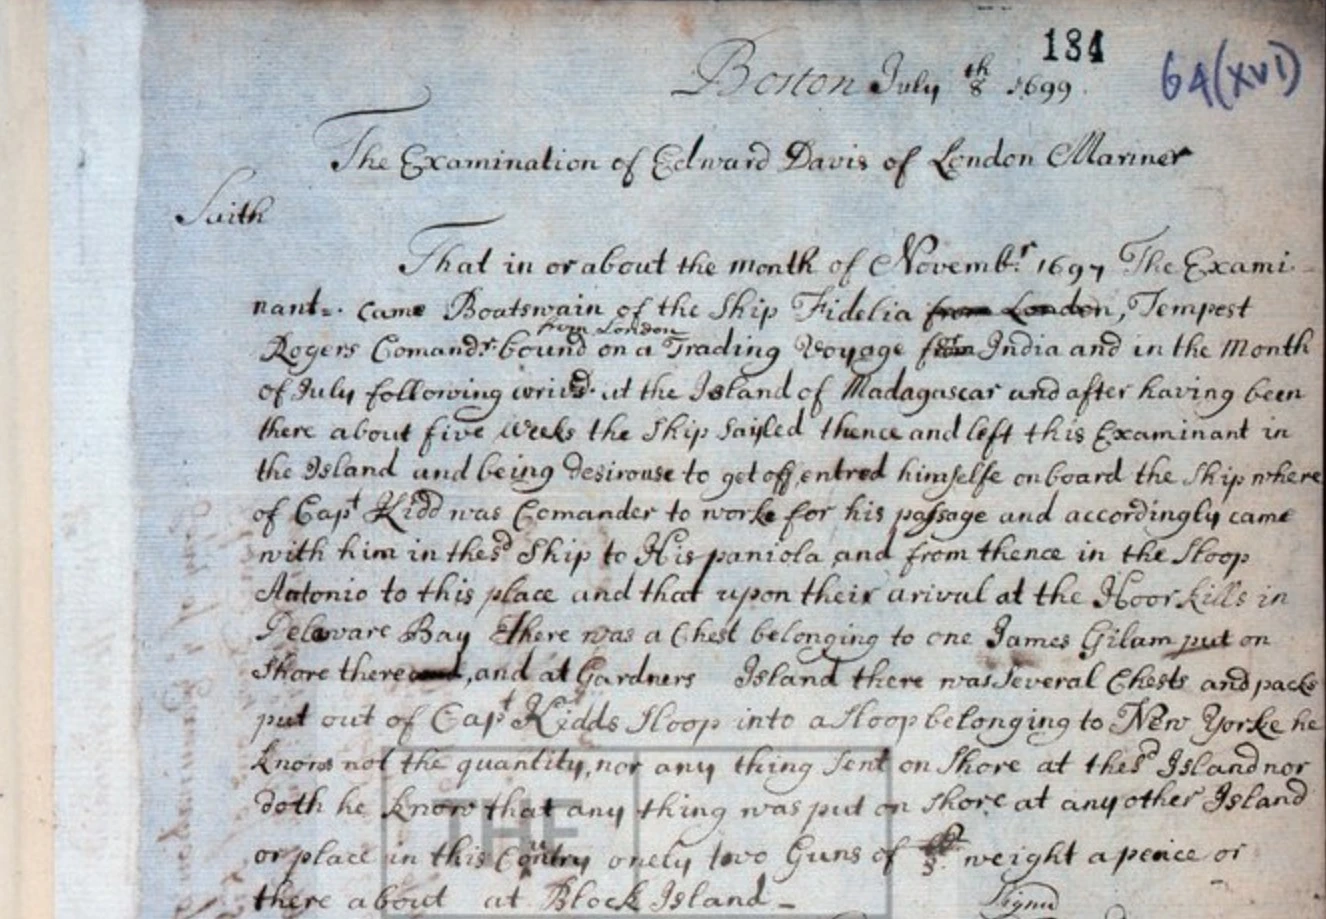 184
64(XVI)
Boston July 8th 1699.
The Examination of Edward Davis of London Mariner
Saith
That in or about the month of Novembr. 1697 The Exami-
nant. came Boatswain of the Ship Fidelia from London, Tempest
from London
Rogers Comandr. bound on a Trading Voyage for India and in the Month
of July following arivd. at the Island of Madagascar and after having been
there about five weeks the Ship Sayled thence and left this Examinant in
the Island and being desirouse to get off entred himselfe onboard the Ship where
of Capt Kidd was Comander to worke for his passage and accordingly came
with him in the sd Ship to Hispaniola and from thence in the Sloop
Antonio to this place and that upon their arival at the Hoor kills in
Delaware Bay there was a Chest belonging to one James Gilam put on
Shore there, and at Gardners Island there was Several Chests and packs
put out of Capt Kidds Sloop into a Sloop belonging to New Yorke he
knows not the quantity, nor any thing Sent on Shore at the sd Island nor
doth he know that any thing was put on shore at any other Island
or place in this Contry onely two Guns of weight apeice or
there about at Block Island -
Signd
THE